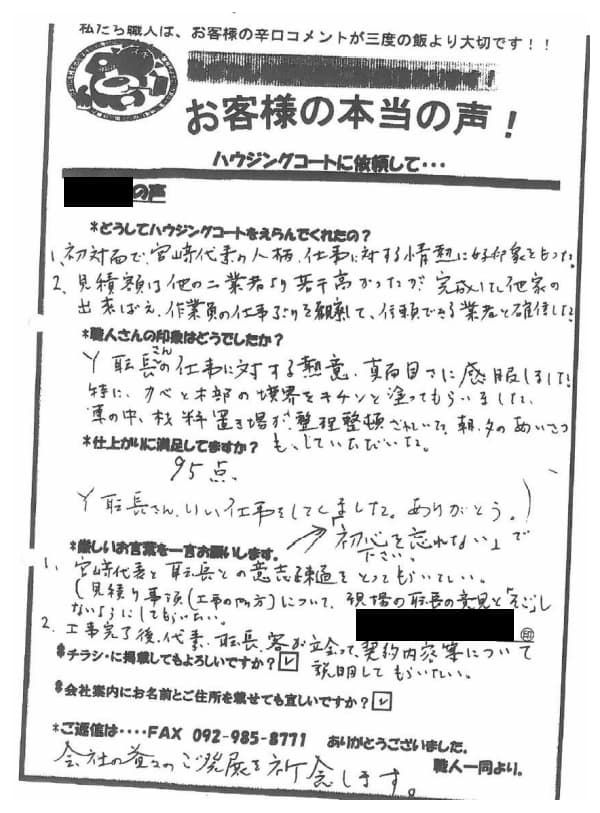 私たち職人は、お客様の辛口コメントが三度の飯より大切です！！
お客様の本当の声！
ハウジングコートに依頼して・・・
の声
*どうしてハウジングコートをえらんでくれたの？
1、初対面で、宮崎代表の人柄、仕事に対する情熱に好印象をもった。
2、見積額は他の二業者より若干高かったが完成した他家の
出来ばえ、作業員の仕事ぶりを観察して、信頼できる業者と確信した
*職人さんの印象はどうでしたか？
Y職長さんの仕事に対する熱意、真面目さに感服しました！
特に、カベと木部の境界をキチンと塗ってもらいました、
車の中、材料置き場が、整理整頓されていた。朝、夕のあいさつ
も、していただいた。
*仕上がりに満足してますか？
95点、
Y職長さん、いい仕事をしてくれました。ありがとう。
「初心を忘れない」で
下さい。
*厳しいお言葉を一言お願いします。
1、宮崎代表と職長との意志疎通をとってもらいたい。
（見積り事項（工事の仕方）について、現場の職長の意見と
ないようにしてもらいたい。
2、工事完了後、代表、職長、客が立会って、契約内容等について
説明してもらいたい。
印
*チラシ・に掲載してもよろしいですか？
*会社案内にお名前とご住所を載せても宜しいですか？
*ご返信は・・・・FAX 092-985-8771 ありがとうございました。
職人一同より。
会社の益々のご発展を祈念します。